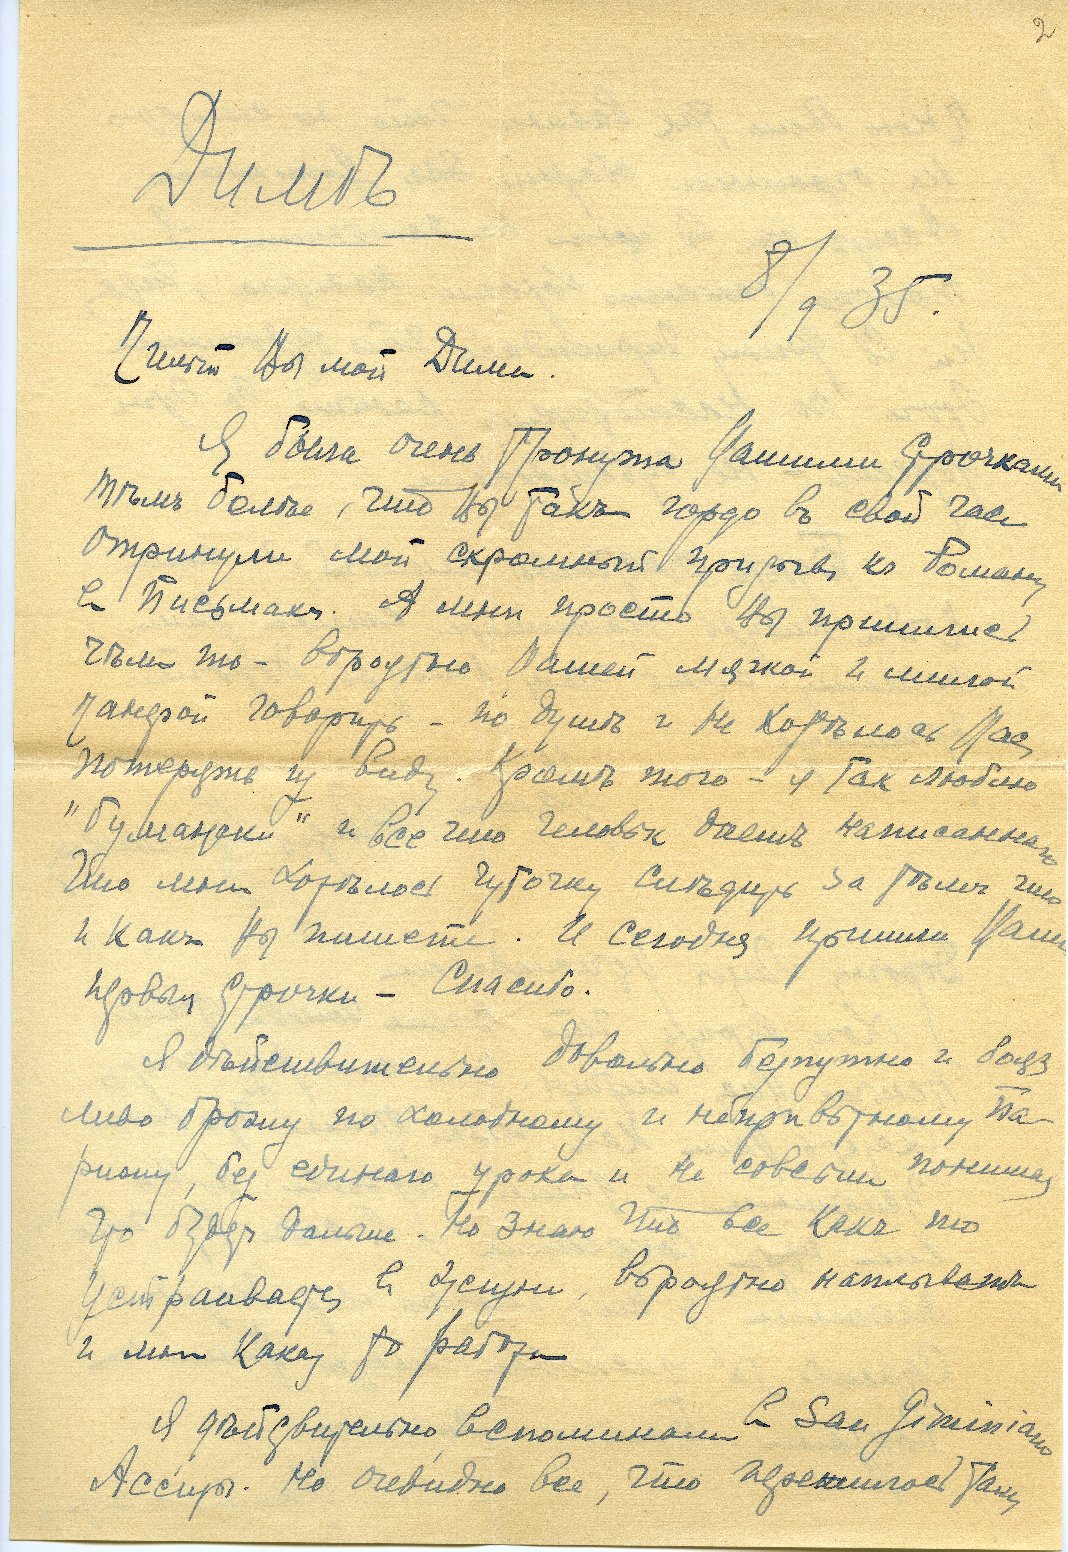 2
Димѣ
8/9 35.
Милый Вы мой Дима.
Я была очень тронута Вашими строчками
тѣмъ болѣе, что Вы такъ гордо въ свой час
отринули мой скромный призывъ къ роману
в письмахъ. А мнѣ просто Вы пришлись
чѣм то – вѣроятно Вашей мягкой и милой
манерой говорить – по душѣ и не хотѣлось Вас
потерять из виду. Кромѣ того – я так люблю
"бумажки" и все что человѣк даетъ написаннаго
что мнѣ хотѣлось чуточку слѣдить за тѣмъ что
и какъ Вы пишете. И сегодня пришли Ваши
первыя строчки – Спасибо.
Я дѣйствительно довольно безпутно и бояз
ливо брожу по холодному и непривѣтному Па-
рижу, без единаго урока и не совсѣм понимая
что будетъ дальше. Но знаю что все какъ то
устраивается в жизни, вѣроятно наплыветъ
и мнѣ какая то работа
Я дѣйствительно вспоминала в San Giminiano
Ассизы. Но очевидно все, что пережилось там,